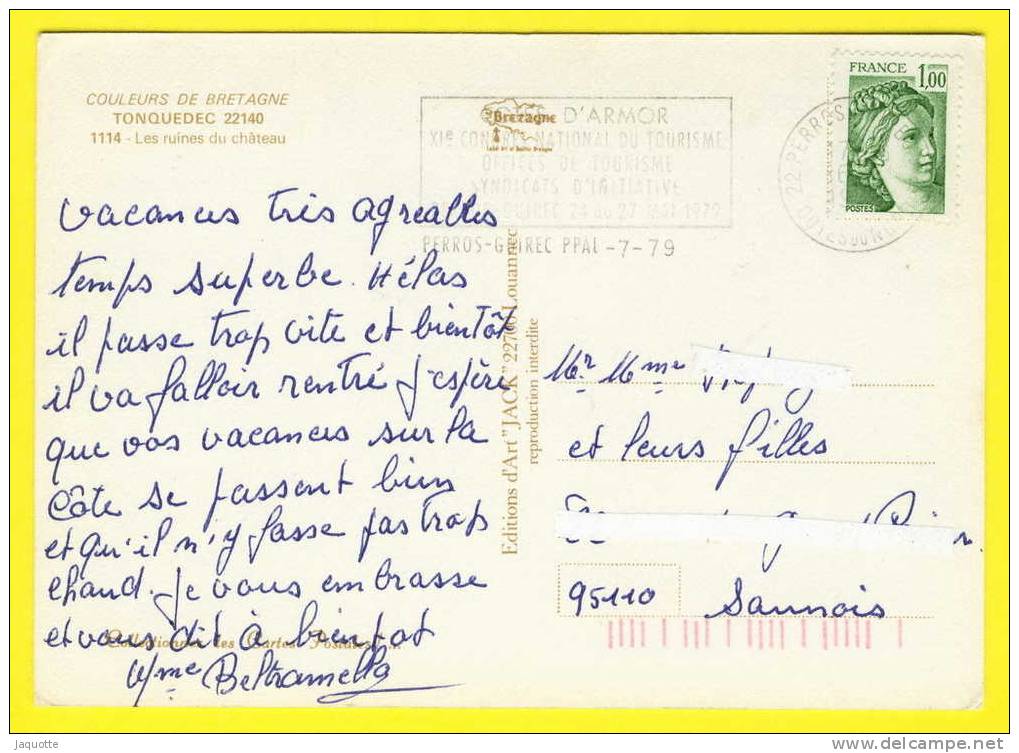 COULEURS DE BRETAGNE
TONQUEDEC 22140
1114 - Les ruines du château
Bretagne
D'ARMOR
XIe CONGRES NATIONAL DU TOURISME
OFFICES DE TOURISME
SYNDICATS D'INITIATIVE
24 au 27 MAI 1979
PERROS-GUIREC PPAL -7-79
22 PERROS
COTES DU NORD
FRANCE 1,00
POSTES
vacances très agreables
temps superbe. Hélas
il passe trop vite et bientôt
il va falloir rentré j'espère
que vos vacances sur la
Côte se passent bien
et qu'il n'y fasse pas trop
chaud. Je vous embrasse
et vous dit à bientot
Mme Beltramella
Collectionnez les Cartes Postales...
Editions d'Art "JACK" 22700 Louannec
reproduction interdite
Mr Mme
et leurs filles
95110 Sannois
Jaquotte
www.delcampe.net